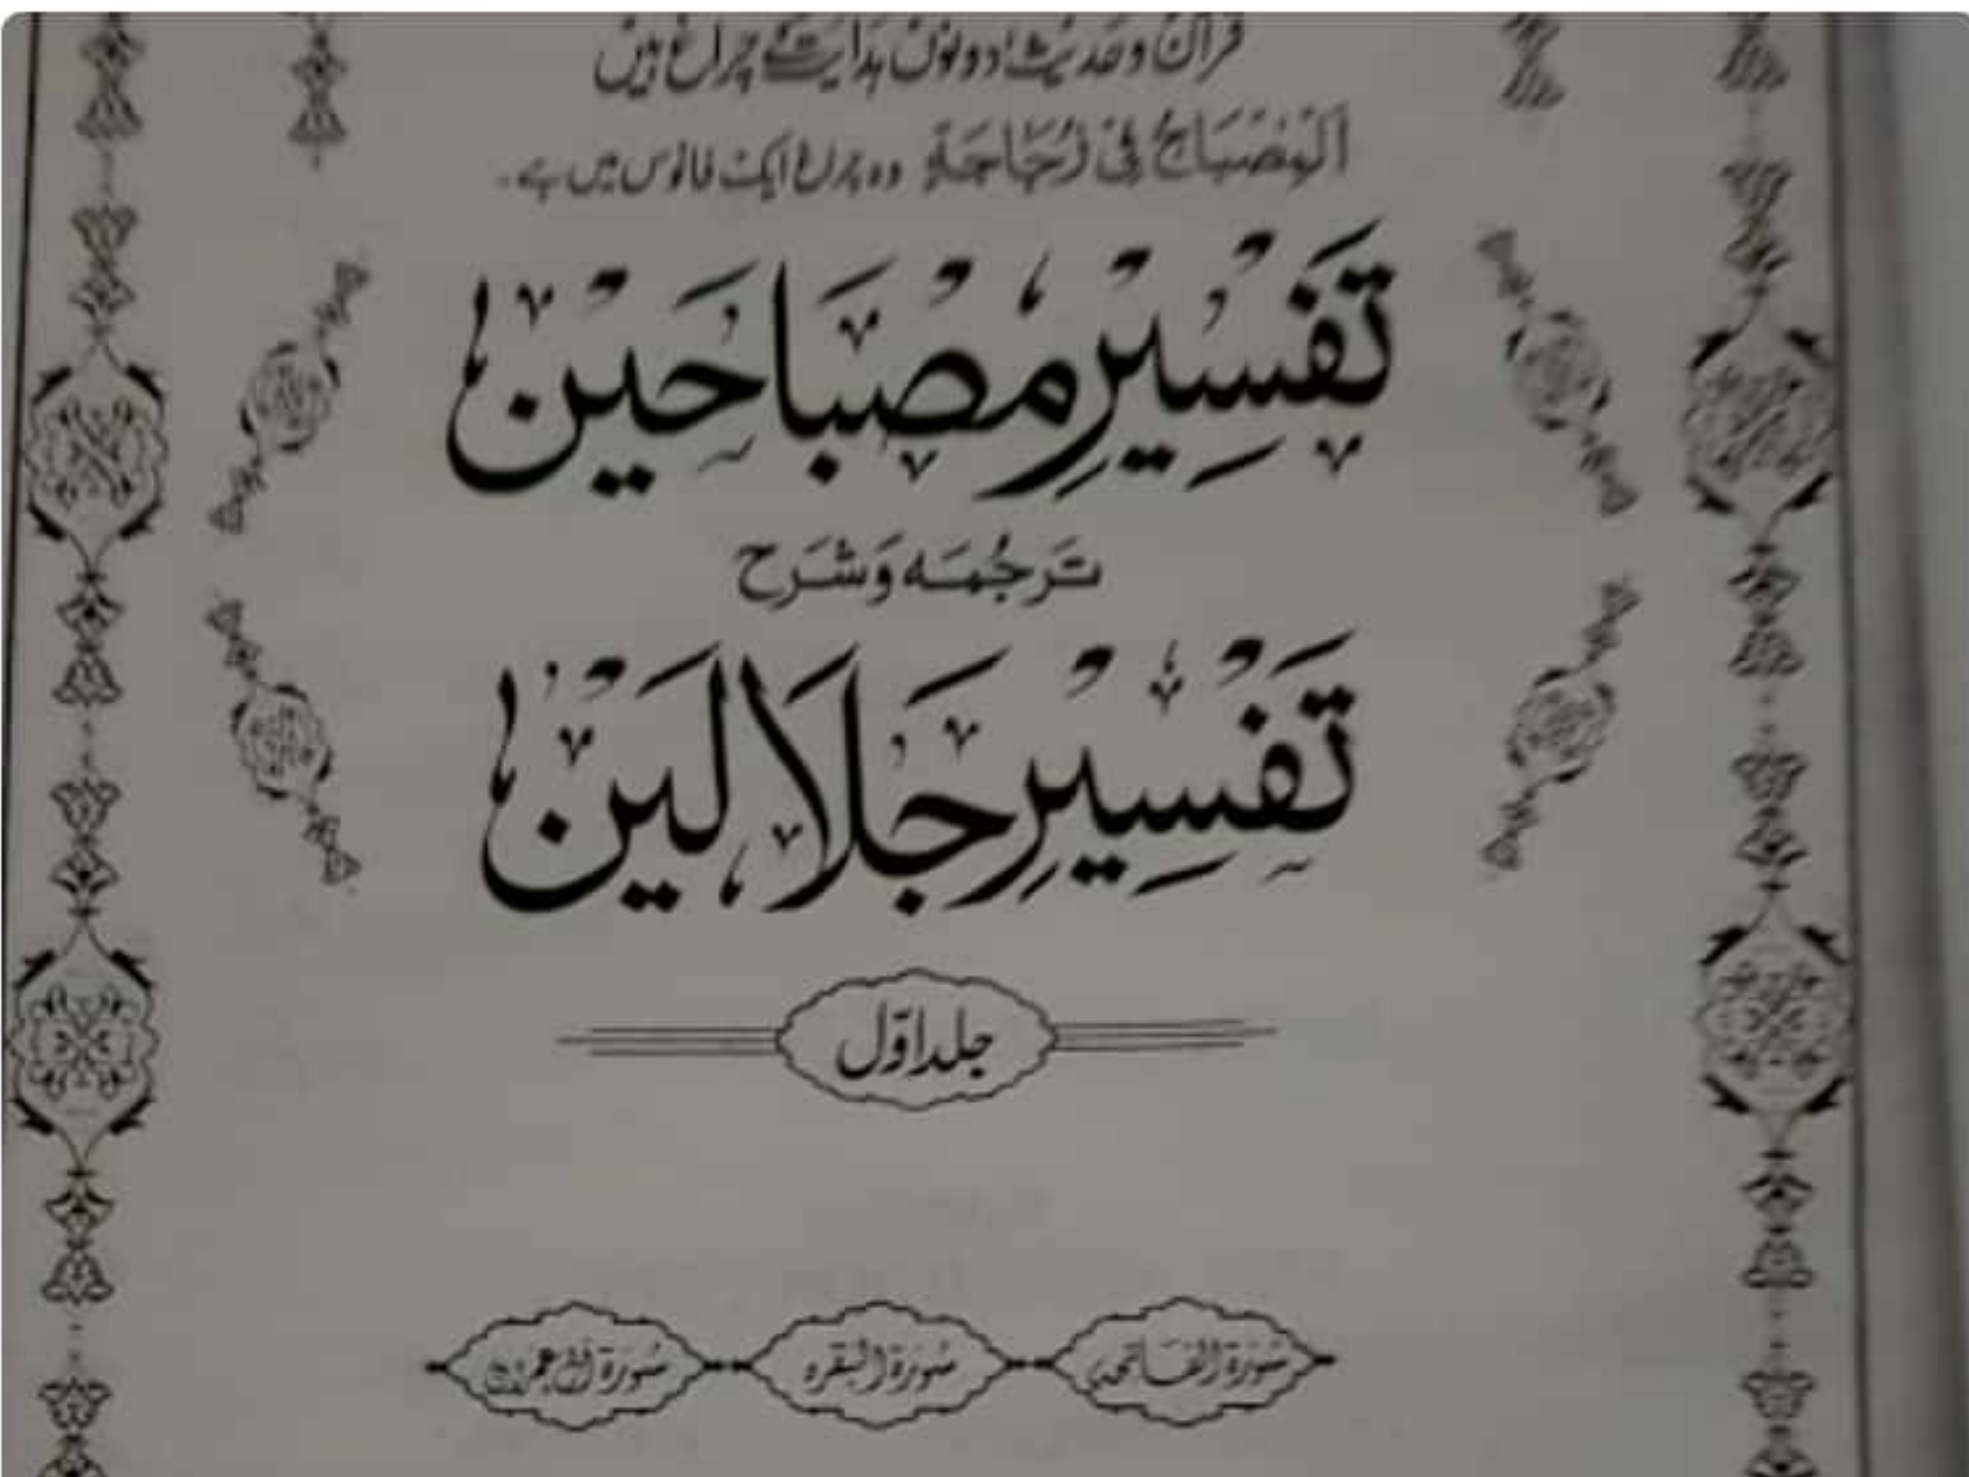 قرآن و حدیث دونوں ہدایت کے چراغ ہیں
اَلْمِصْبَاحُ فِیْ زُجَاجَۃٍ وہ چراغ ایک فانوس میں ہے۔
تَفْسِیْرِ مِصْبَاحَیْن
تَرجُمَہ وَشَرَح
تَفْسِیْرِ جَلَالَیْن
جلد اوّل
سُورۃ الفَاتحہ سُورۃ البقرہ سُورۃ اٰل عمرٰن